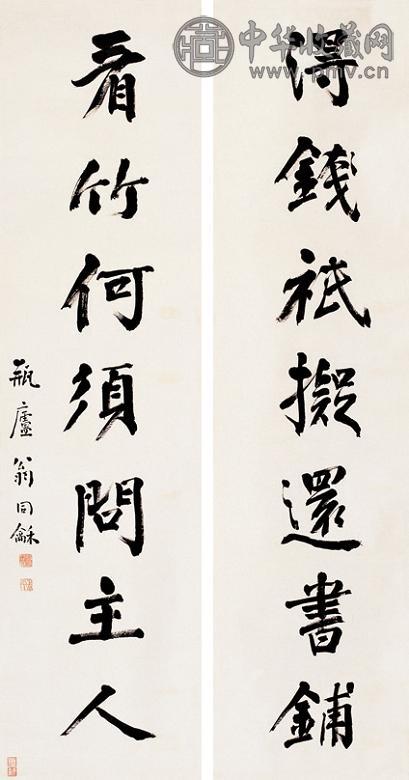 中华收藏网
www.pmv.cn
得錢祇擬還書鋪
看竹何須問主人
瓶廬翁同龢